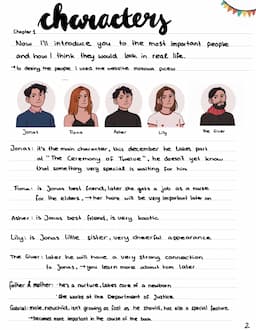 characters
Chapter 1
Now I'll introduce you to the most important people
and how I think they would look in real life.
Jonas
Fiona
Asher
Lily
the Giver
Jonas: it's the main character, this december he takes part
at "The Ceremony of Twelve", he doesn't yet know
that something very special is waiting for him
Fiona: is Jonas best friend, later she gets a job as a nurse
for the elders, → her name will be very important later on
Asher: is Jonas best friend, is very kaotic
Lily: is Jonas little sister, very cheerful appearance
The Giver: later he will have a very strong connection
to Jonas, → you learn more about him later
father & mother: he's a nurture, takes care of a newborn
she works at the Department of Justice
Gabriel: male, newchild, isn't growing as fast as he should, has also a special feature
→ becomes more important in the course of the book
2